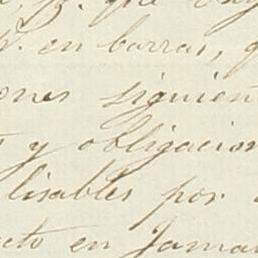 que
r. en barras,
ones siguien
y obligacion
lisables por
ecto en Jama